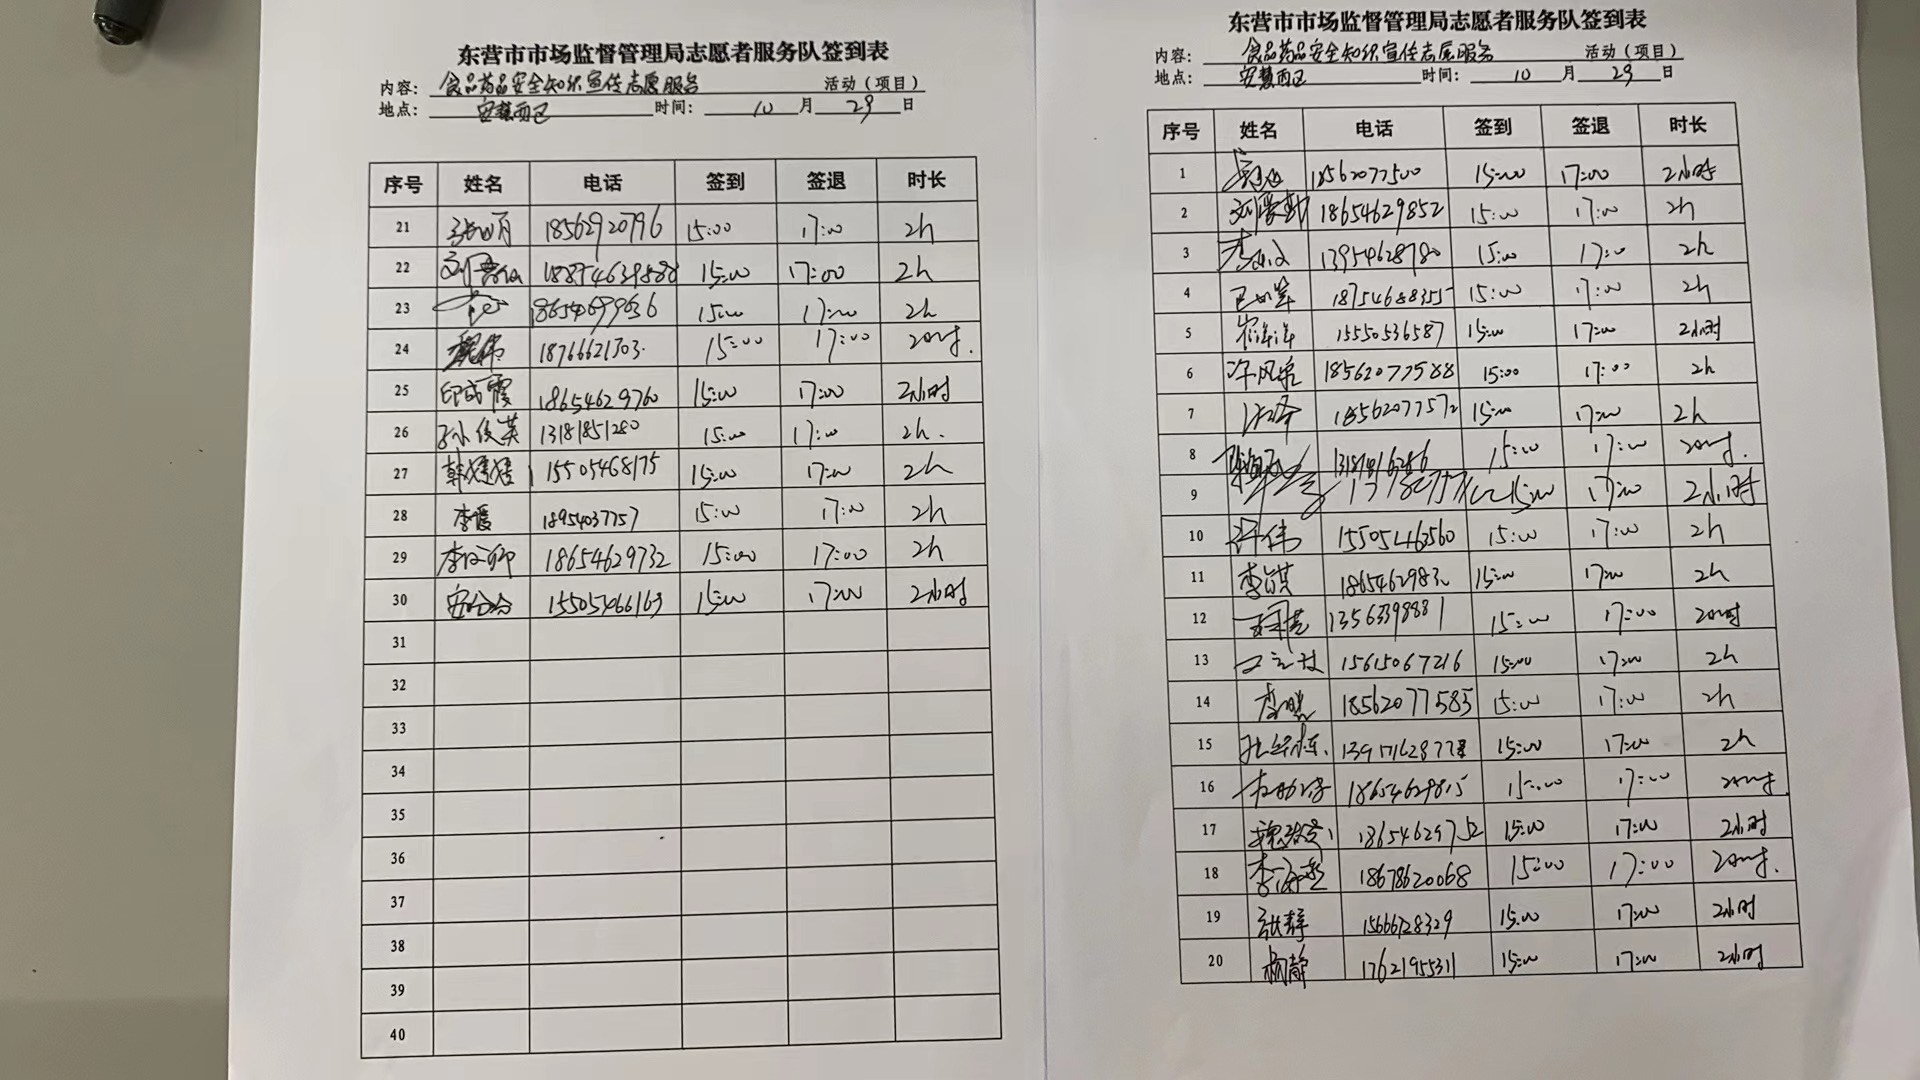 东营市市场监督管理局志愿者服务队签到表
内容: 食品药品安全知识宣传志愿服务 活动(项目)
地点: 安慧西区 时间: 10 月 29 日
序号 姓名 电话 签到 签退 时长
21 18562920796 15:00 17:00 2h
22 15:00 17:00 2h
23 15:00 17:00 2h
24 魏伟 18766621303. 15:00 17:00 2小时.
25 印成霞 18654629760 15:00 17:00 2小时
26 孙俊英 13181851280 15:00 17:00 2h.
27 韩媛媛 15505468175 15:00 17:00 2h
28 李媛 18954037757 15:00 17:00 2h
29 18654629732 15:00 17:00 2h
30 15505466163 15:00 17:00 2小时
31
32
33
34
35
36
37
38
39
40
东营市市场监督管理局志愿者服务队签到表
内容: 食品药品安全知识宣传志愿服务 活动(项目)
地点: 安慧西区 时间: 10 月 29 日
序号 姓名 电话 签到 签退 时长
1 18562077500 15:00 17:00 2小时
2 18654629852 15:00 17:00 2h
3 13954628780 15:00 17:00 2h
4 15:00 17:00 2h
5 15550536587 15:00 17:00 2小时
6 许风泉 18562077588 15:00 17:00 2h
7 18562077572 15:00 17:00 2h
8 15:00 17:00 2小时.
9 15:00 17:00 2小时
10 许伟 15505463560 15:00 17:00 2h
11 15:00 17:00 2h
12 13563398881 15:00 17:00 2小时
13 15615067216 15:00 17:00 2h
14 18562077585 15:00 17:00 2h
15 15:00 17:00 2h
16 18654629815 15:00 17:00 2小时.
17 18654629752 15:00 17:00 2小时
18 18678620068 15:00 17:00 2小时.
19 张静 15666728329 15:00 17:00 2小时
20 杨静 17621955311 15:00 17:00 2小时